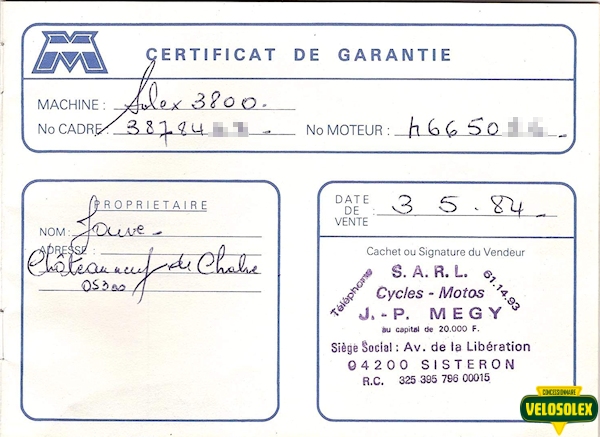 CERTIFICAT DE GARANTIE
MACHINE : Solex 3800.
No CADRE : 38784
No MOTEUR : H6650
PROPRIETAIRE
NOM : Jouve
ADRESSE :
Châteauneuf de Chabre
05300
DATE DE VENTE : 3 5.84
Cachet ou Signature du Vendeur
S.A.R.L.
Téléphone 61.14.93
Cycles - Motos
J.-P. MEGY
au capital de 20.000 F.
Siège Social : Av. de la Libération
04200 SISTERON
R.C. 325 395 796 00015
CONCESSIONNAIRE
VELOSOLEX